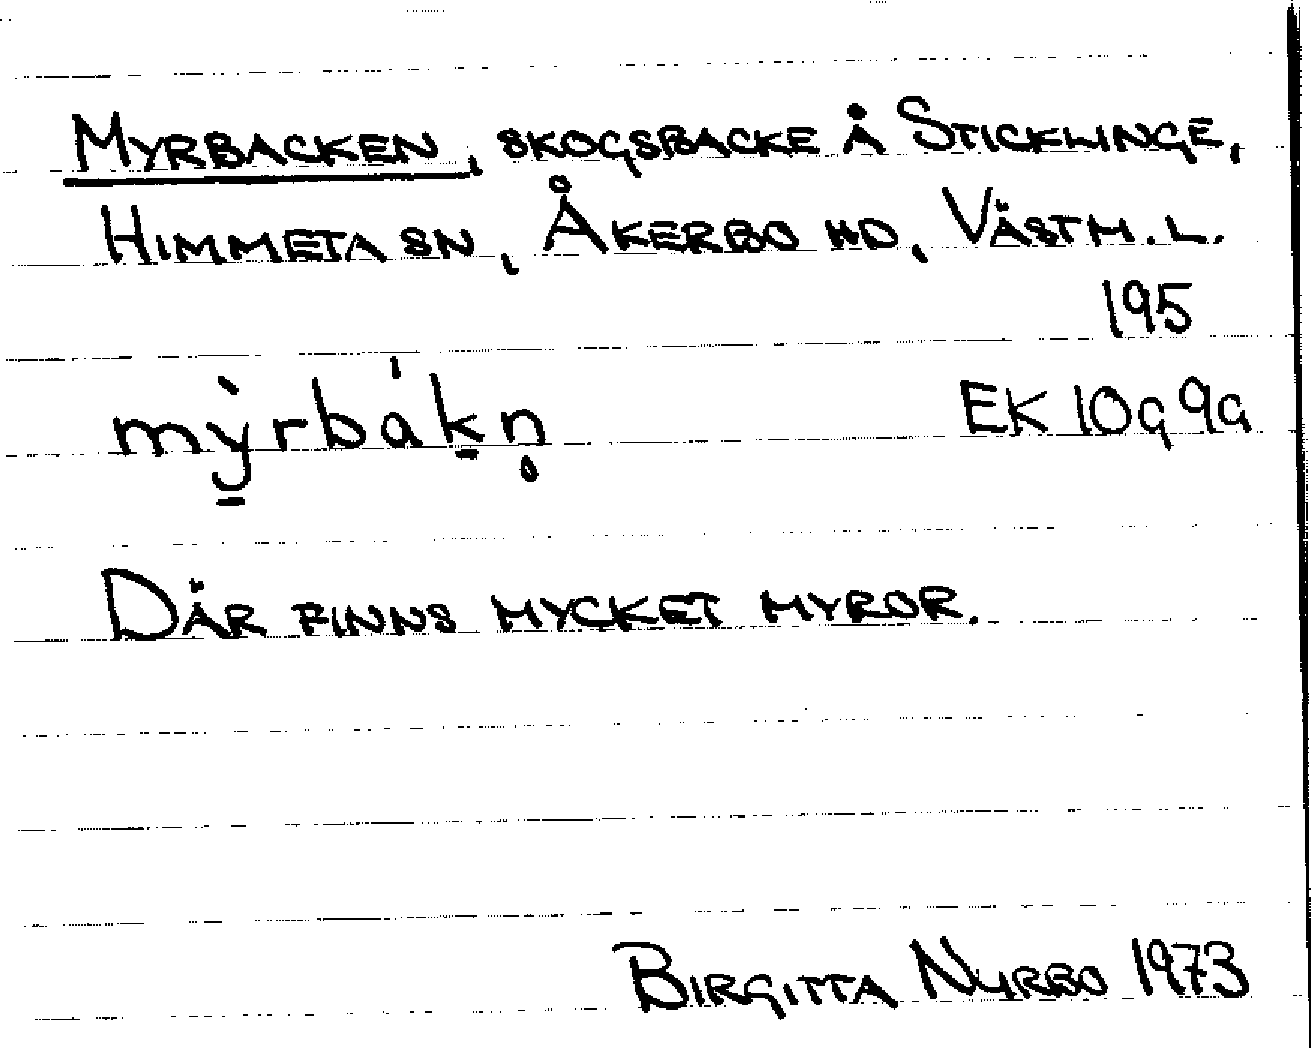 MYRBACKEN, SKOGSBACKE Å STICKLINGE,
HIMMETA SN, ÅKERBO HD, VÄSTM. L.
195
mỳ̠rbák̠n̥
EK 10g 9a
DÄR FINNS MYCKET MYROR.
BIRGITTA NYRBO 1973